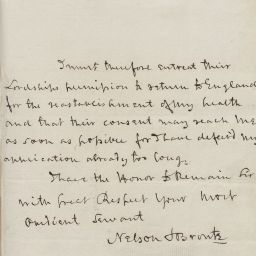 I must therefore entreat their
Lordships permission to return to England
for the reastablishment of my health
and that their consent may reach me
as soon as possible for I have defer'd my
application already too long.
I have the Honor to Remain Sir
with Great Respect Your Most
Obedient Servant
Nelson & Bronte